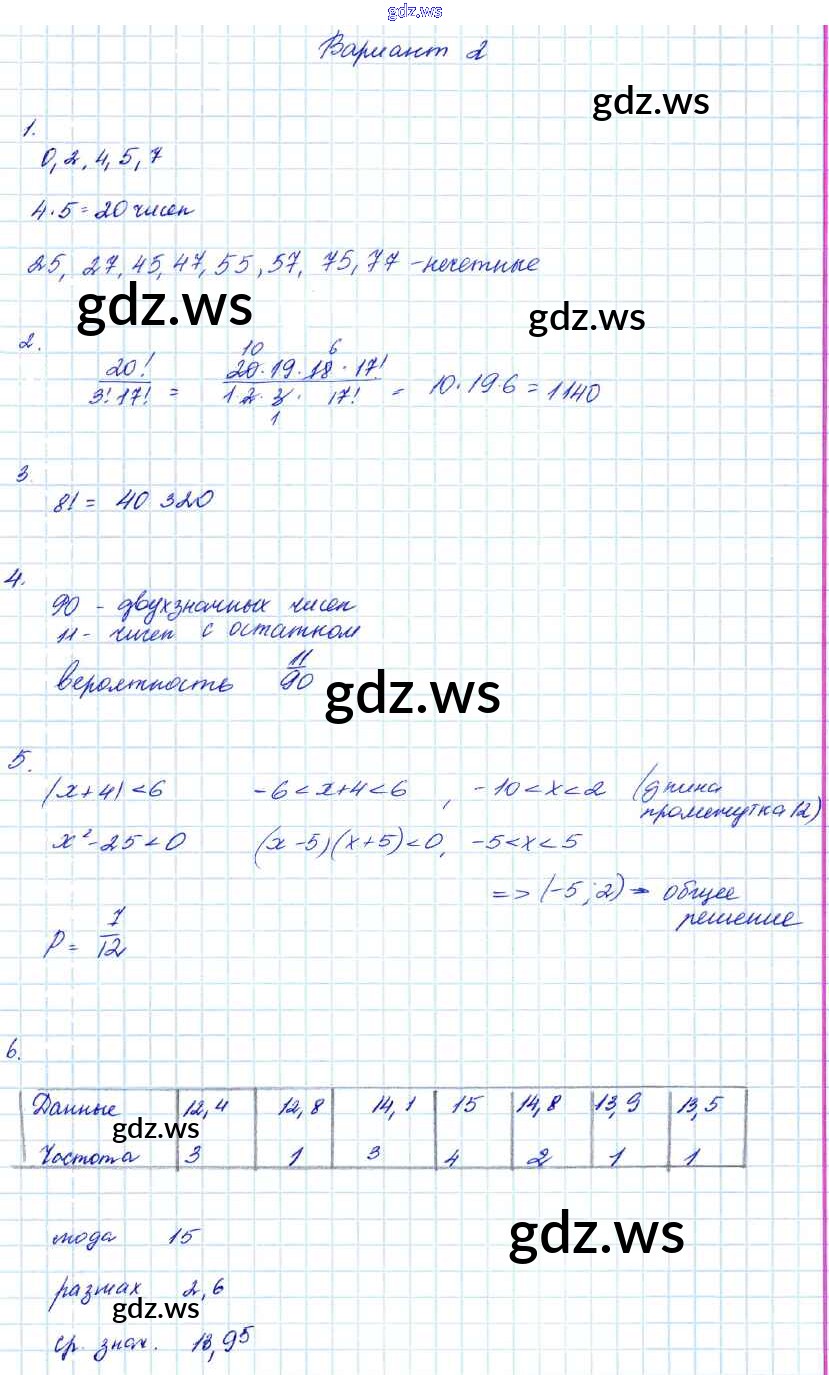 gdz.ws
Вариант 2
gdz.ws
1.
0, 2, 4, 5, 7
4·5=20 чисел
25, 27, 45, 47, 55, 57, 75, 77 - нечетные
gdz.ws
gdz.ws
2.
20!/3!17! = 20·19·18·17!/1·2·3·17! = 10·19·6 = 1140
10 6
1
3.
8! = 40 320
4.
90 - двухзначных чисел
11 - чисел с остатком
вероятность 11/90
gdz.ws
5.
|x+4|<6 -6<x+4<6, -10<x<2 (длина
промежутка 12)
x²-25<0 (x-5)(x+5)<0, -5<x<5
=> (-5; 2) - общее
решение
P = 7/12
6.
Данные 12,4 12,8 14,1 15 14,8 13,9 13,5
gdz.ws
Частота 3 1 3 4 2 1 1
мода 15
gdz.ws
размах 2,6
gdz.ws
ср. знач. 13,95